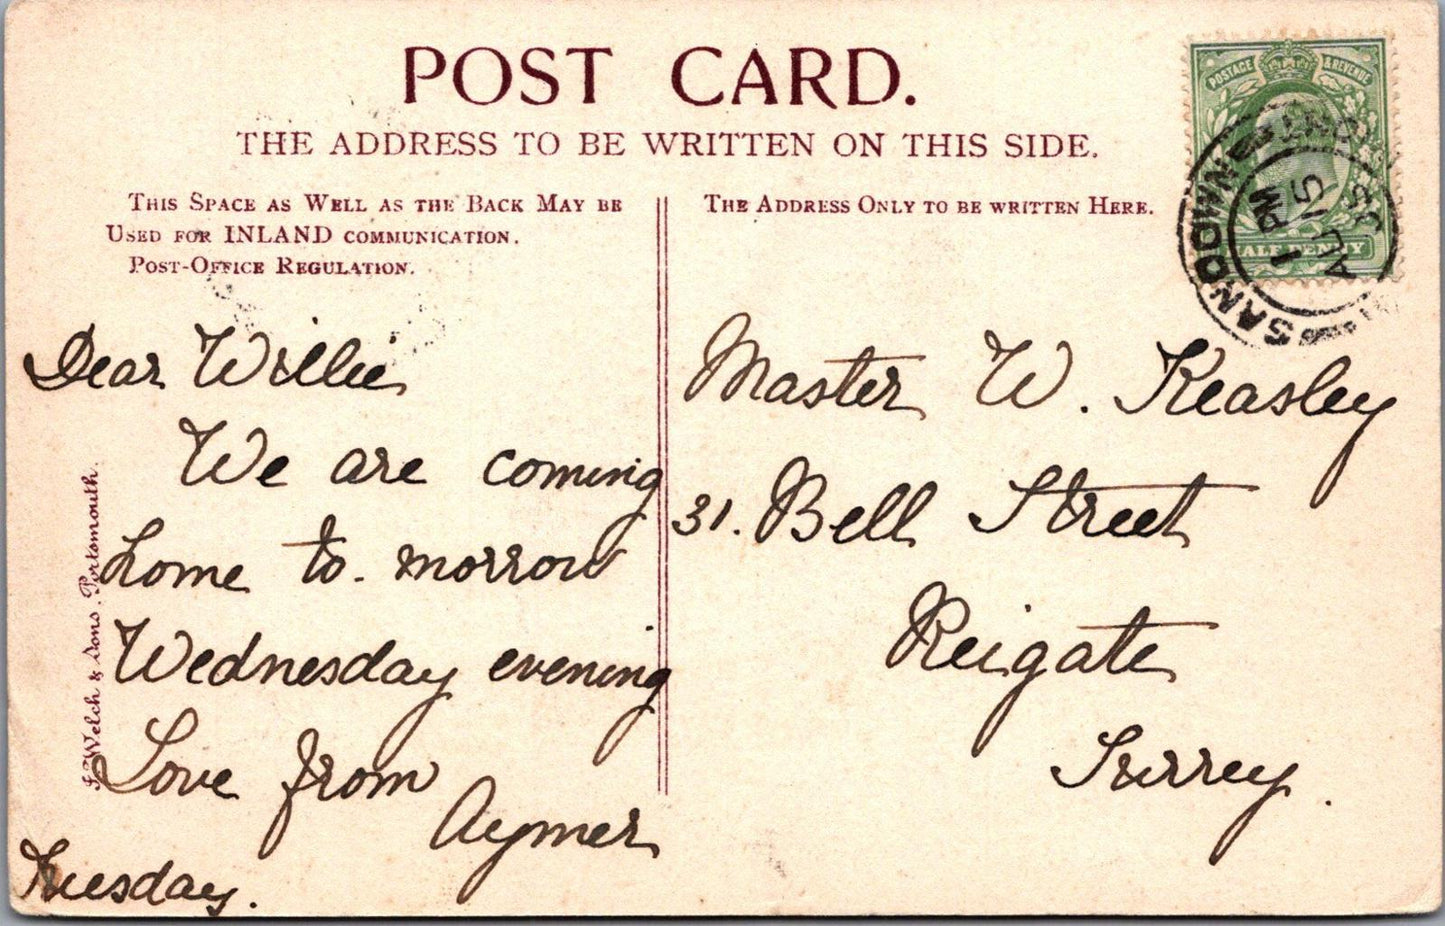 POST CARD.
THE ADDRESS TO BE WRITTEN ON THIS SIDE.
THIS SPACE AS WELL AS THE BACK MAY BE
USED FOR INLAND COMMUNICATION.
POST-OFFICE REGULATION.
THE ADDRESS ONLY TO BE WRITTEN HERE.
POSTAGE & REVENUE
HALF PENNY
SANDOWN
1 PM
AU 15
Dear Willie
We are coming
home to-morrow
Wednesday evening
Love from
Aymer
Tuesday.
Master W. Keasley
31. Bell Street
Reigate
Surrey.
Welch & Sons, Portsmouth.